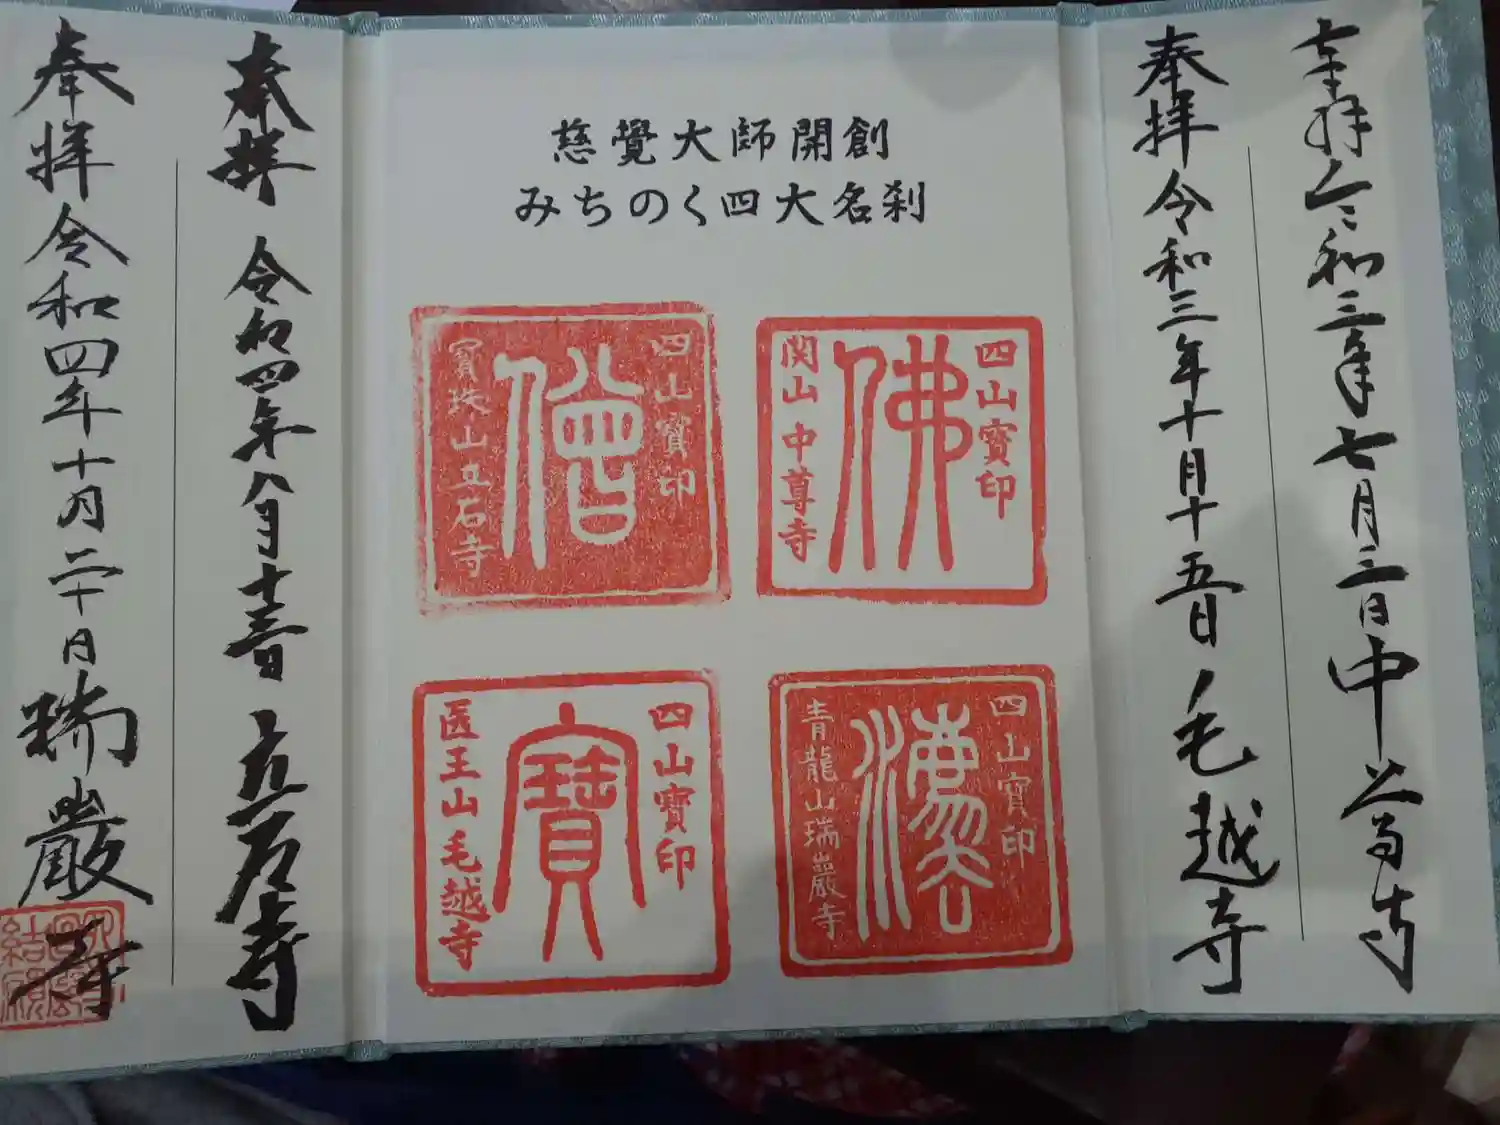 奉拝 令和三年七月三日 中尊寺
奉拝 令和三年十月十五日 毛越寺
慈覺大師開創
みちのく四大名刹
四山寶印
佛
関山 中尊寺
四山寶印
僧
寳珠山立石寺
四山寶印
法
青龍山瑞巖寺
四山寶印
寶
医王山毛越寺
奉拝 令和四年八月十三日 立石寺
奉拝 令和四年十月二十日 瑞巖寺
結願